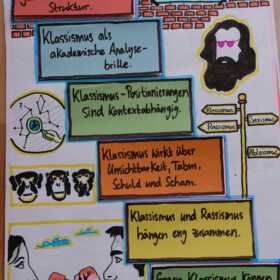 Struktur.
Klassismus als
akademische Analyse-
brille.
Klassismus-Positionierungen
Sind Kontextabhängig.
Klassismus
Rassismus
Sexismus
Ableismus
Klassismus Wirkt über
Unsichtbarkeit, Tabus,
Schuld und Scham.
Klassismus und Rassismus
hängen eng zusammen.
Gegen Klassismus können